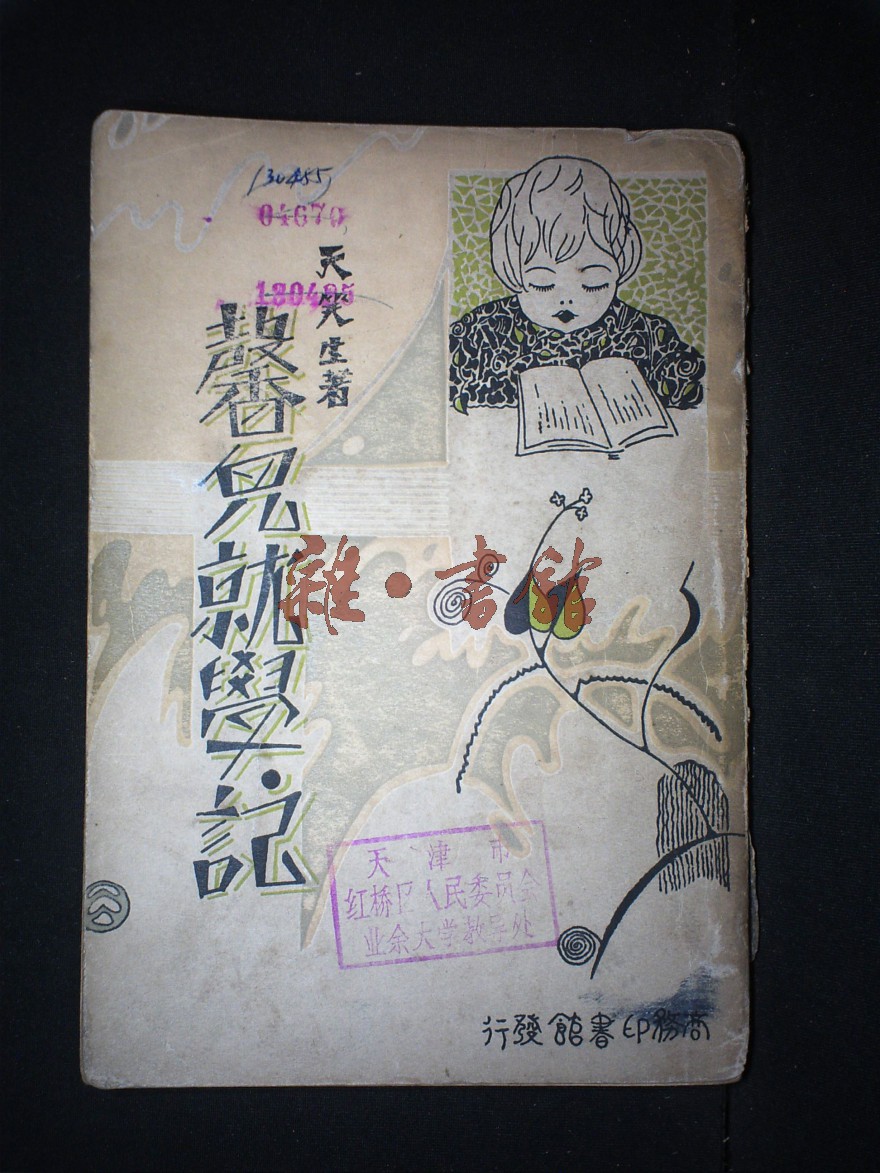 130455
04670
130455
天笑生著
馨兒就學記
雜·書館
天津市
红桥区人民委员会
业余大学教导处
商務印書館發行